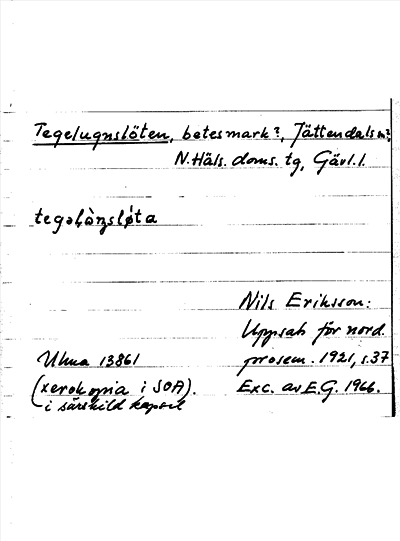 Tegelugnslöten, betesmark?, Jättendals sn?
N. Häls. doms. tg, Gävl. l.
tegəlàŋsløta
Nils Eriksson:
Uppsats för nord.
prosem. 1921, s. 37
Exc. av E.G. 1966.
Uluma 13861
(xerokopia i SOA).
i särskild kapsel